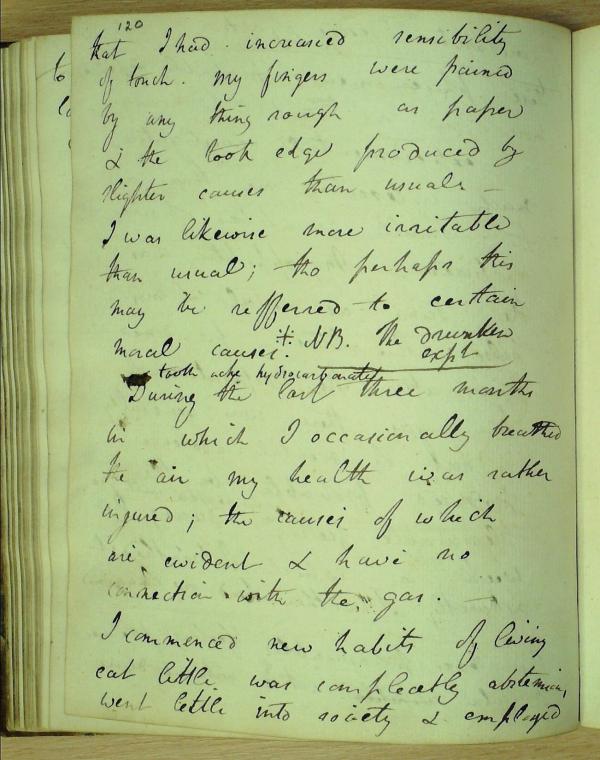 120
that I had increased sensibility
of touch. my fingers were pained
by any thing rough as paper
& the tooth edge produced by
slighter causes than usual –
I was likewise more irritable
than usual; tho perhaps this
may be refferred to certain
moral causes. NB. The drunken
expt
tooth ache hydrocarbonate
During the last three months
in which I occasionally breathed
the air my health was rather
injured; the causes of which
are evident & have no
connection with the gas. –
I commenced new habits of living
eat little was compleatly abstemious,
went little into society & employed